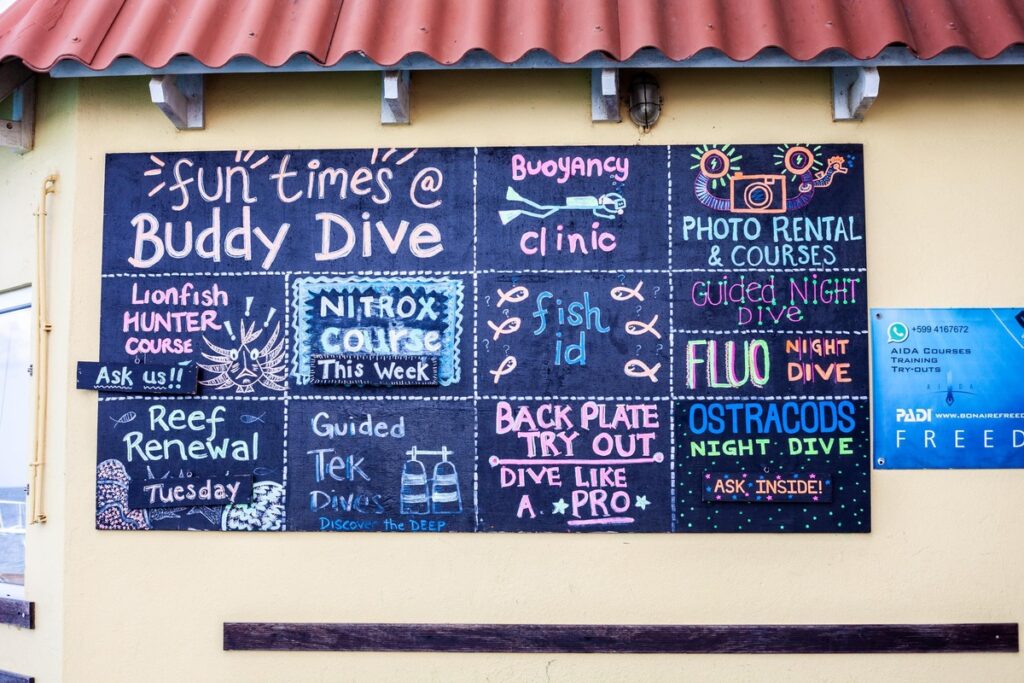 fun times @
Buddy Dive
Buoyancy
clinic
PHOTO RENTAL
& COURSES
Lionfish
HUNTER
COURSE
Ask us!!
NITROX
COURSE
This Week
fish
id
Guided Night
Dive
FLUO NIGHT
DIVE
Reef
Renewal
Tuesday
Guided
Tek
Dives
Discover the DEEP
BACK PLATE
TRY OUT
DIVE LIKE
A PRO
OSTRACODS
NIGHT DIVE
ASK INSIDE!
+599 4167672
AIDA Courses
Training
Try-outs
PADI www.bonairefree
FREED